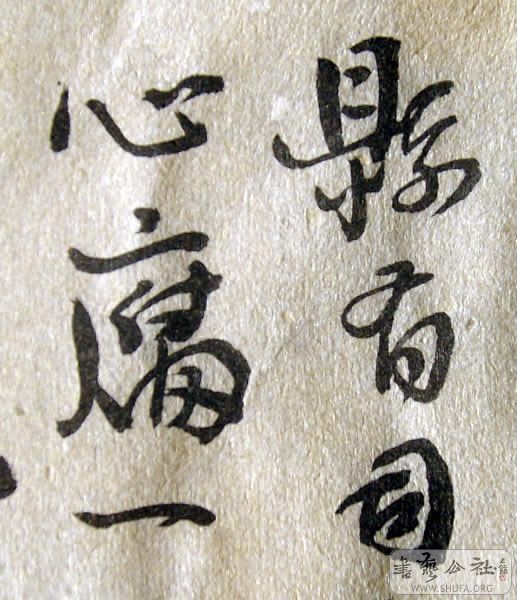 縣有司
心腐一
書藝公社
WWW.SHUFA.ORG